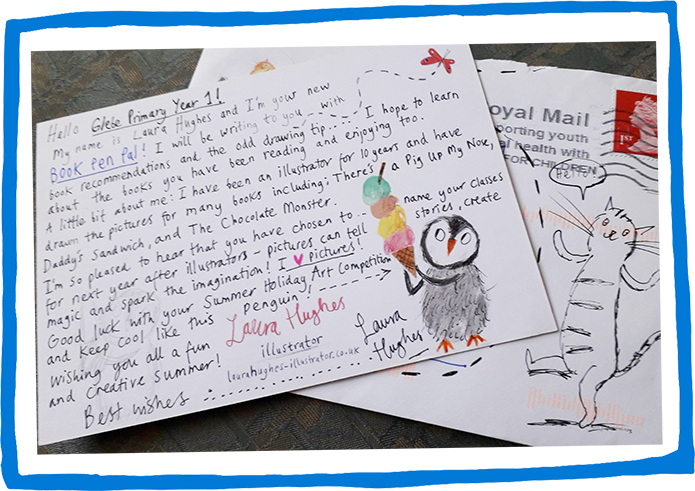 Hello Glebe Primary Year 1!
My name is Laura Hughes and I'm your new
BOOK Pen Pal! I will be writing to you with
book recommendations and the odd drawing tip..... I hope to learn
about the books you have been reading and enjoying too.
A little bit about me: I have been an illustrator for 10 years and have
drawn the pictures for many books including: There's a Pig Up My Nose,
Daddy's Sandwich, and The Chocolate Monster.
I'm so pleased to hear that you have chosen to.. name your classes
for next year after illustrators - pictures can tell stories, create
magic and spark the imagination! I ♥ pictures!
Good luck with your Summer Holiday Art Competition
and keep cool like this penguin!
Wishing you all a fun
and creative summer!
Best wishes
Laura Hughes
illustrator
laurahughes-illustrator.co.uk
Laura
Hughes
oyal Mail
porting youth
al health with
FOR CHILDREN
1st
Hello!